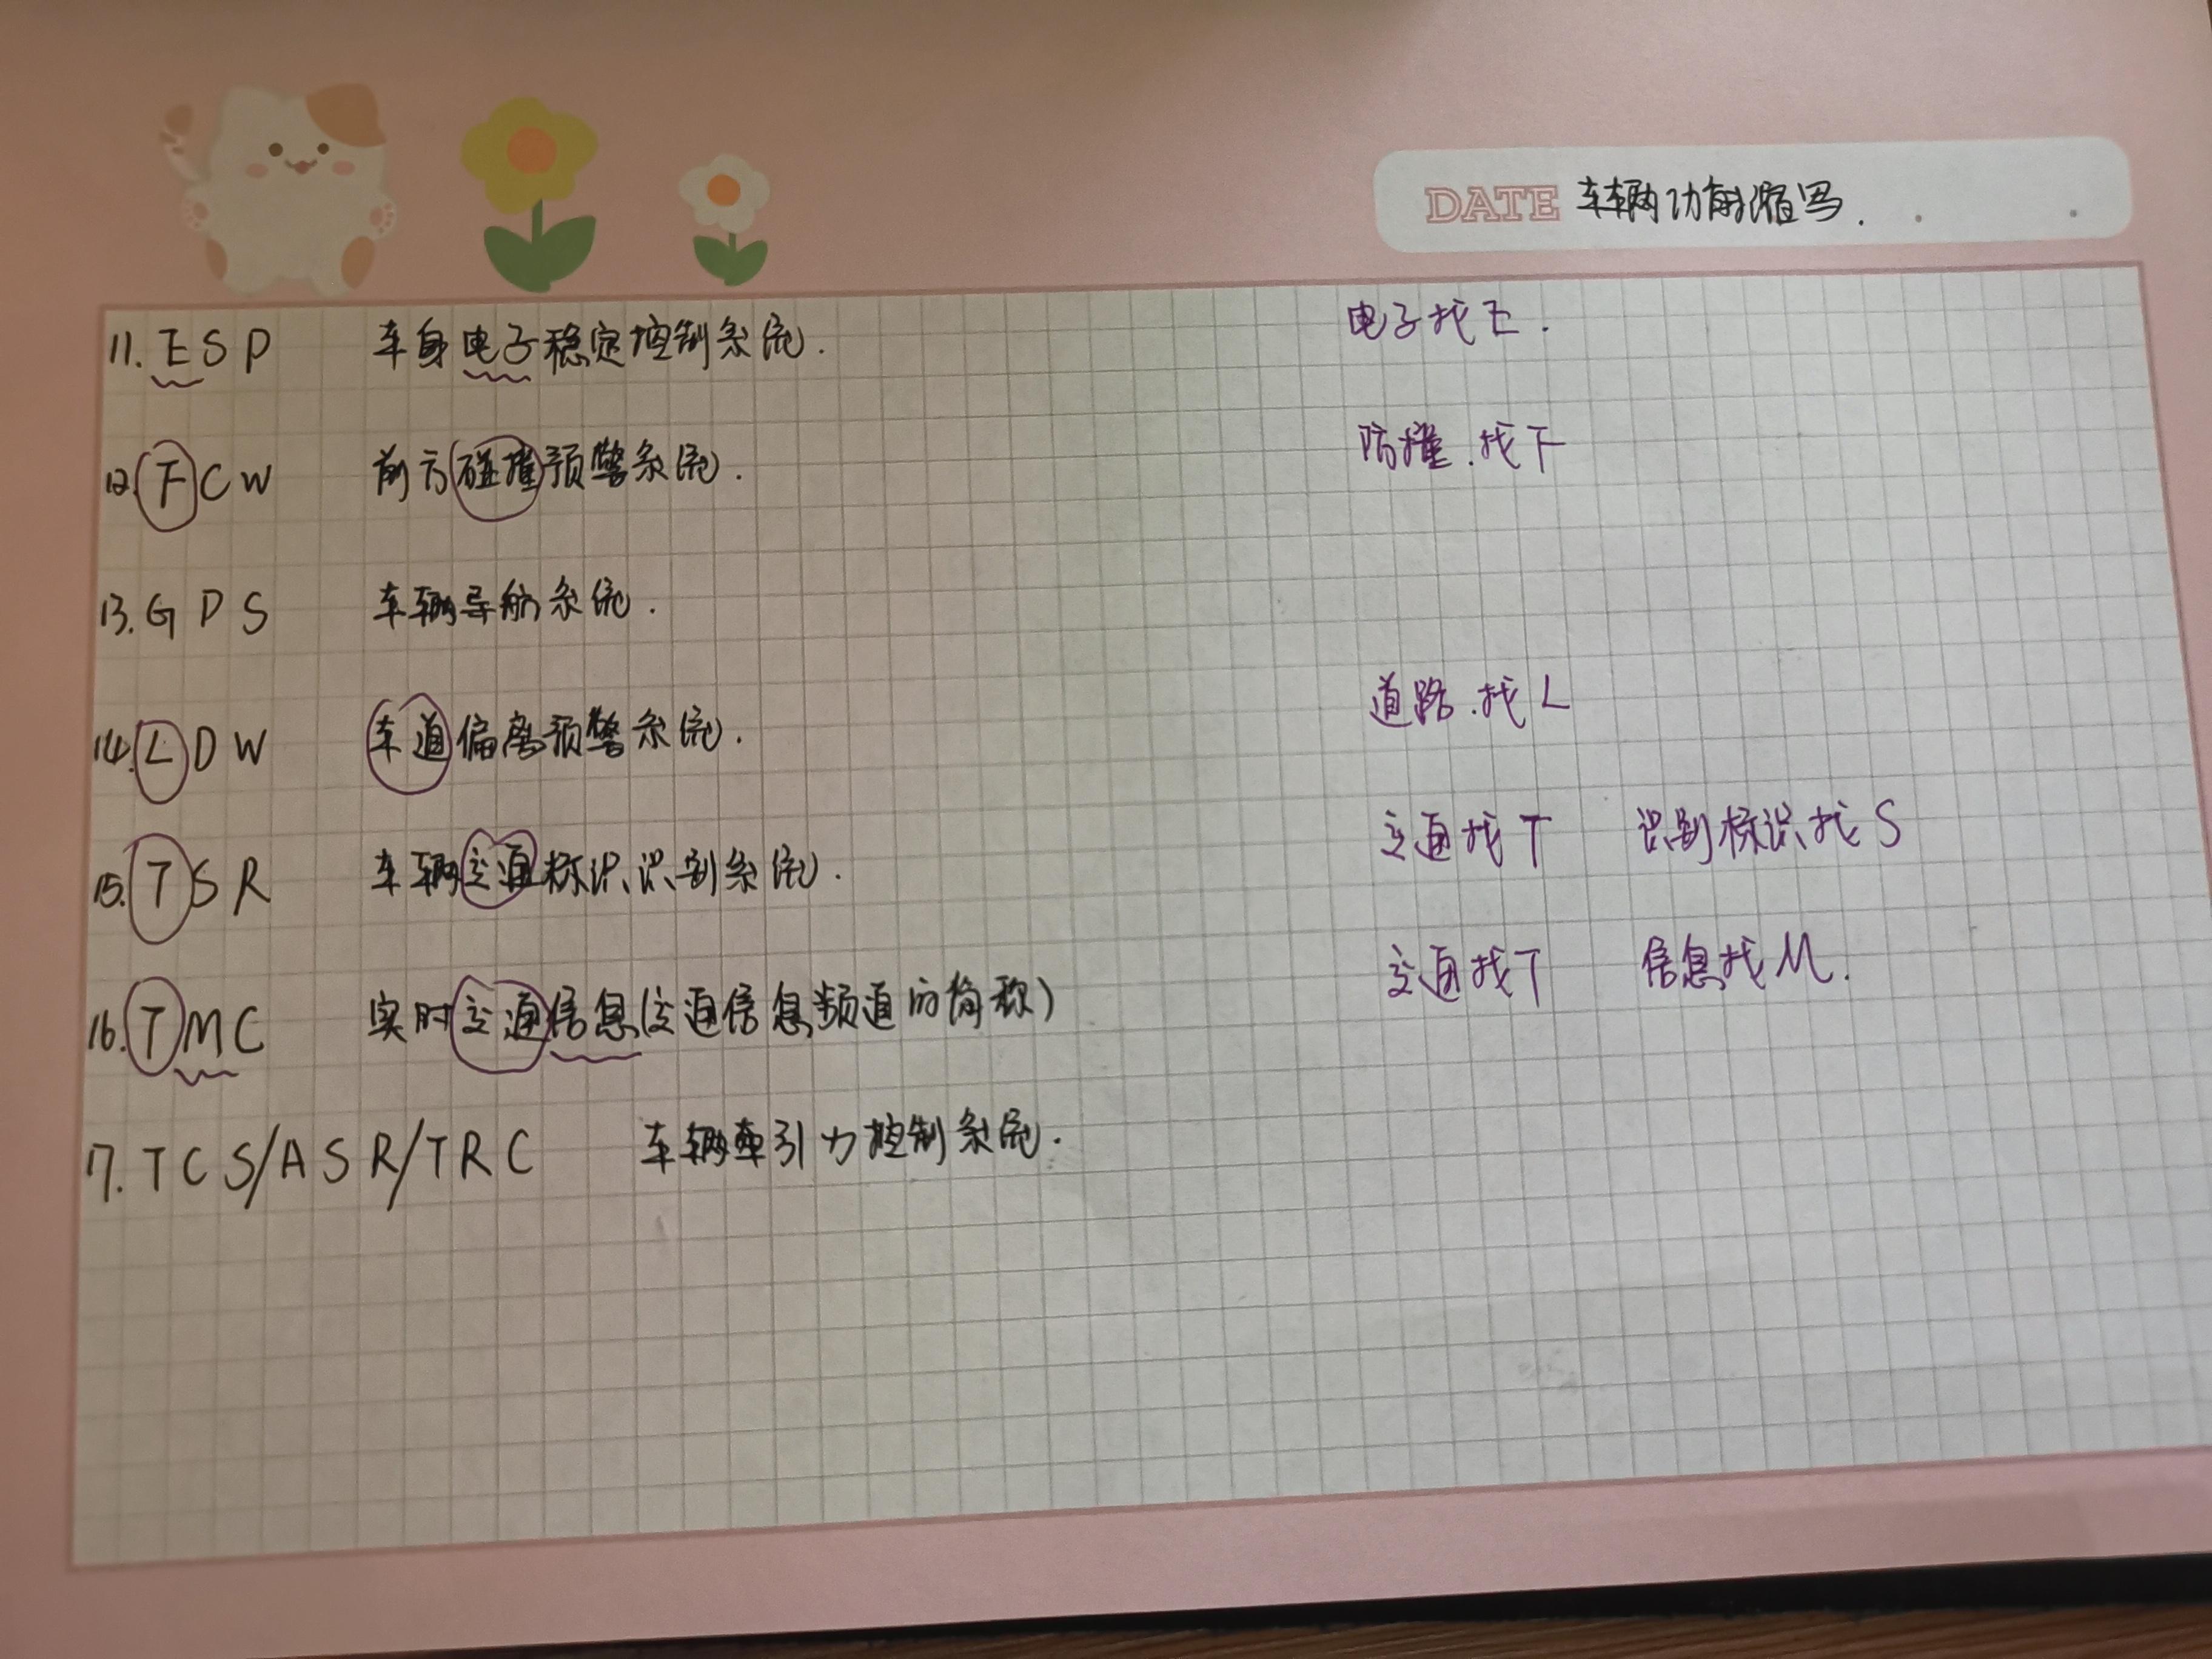 DATE 车辆功能缩写.
11. ESP 车身电子稳定控制系统. 电子找E.
12. FCW 前方碰撞预警系统. 防撞.找F
13. GPS 车辆导航系统.
14. LDW 车道偏离预警系统. 道路.找L
15. TSR 车辆交通标识识别系统. 交通找T 识别标识找S
16. TMC 实时交通信息(交通信息频道的简称) 交通找T 信息找M.
17. TCS/ASR/TRC 车辆牵引力控制系统.